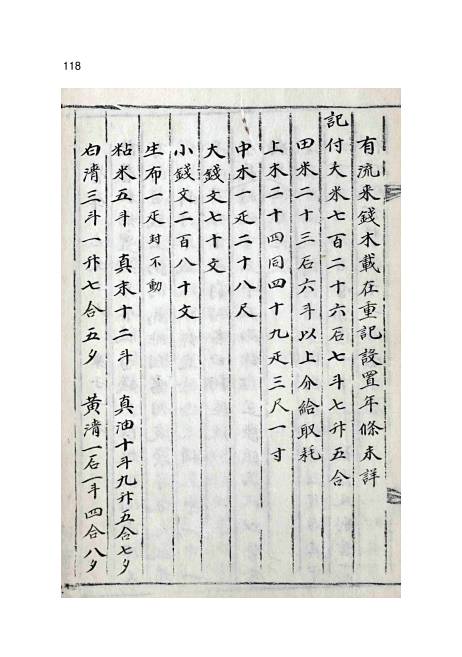 118
有流來錢木載在重記設置年條未詳
記付大米七百二十六石七斗七升五合
田米二十三石六斗以上分給取耗
上木二十四同四十九疋三尺一寸
中木一疋二十八尺
大錢文七十文
小錢文二百八十文
生布一疋封不動
粘米五斗 真末十二斗 真油十斗九升五合七夕
白淸三斗一升七合五夕 黃淸一石一斗四合八夕